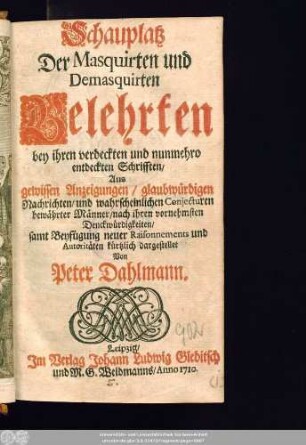 Schauplatz
Der Masquirten und
Demasquirten
Gelehrten
bey ihren verdeckten und nunmehro
entdeckten Schrifften/
Aus
gewissen Anzeigungen / glaubwürdigen
Nachrichten / und wahrscheinlichen Conjecturen
bewährter Männer / nach ihren vornehmsten
Denckwürdigkeiten /
samt Beyfügung neuer Raisonnements und
Autoritäten kürtzlich dargestellet
Von
Peter Dahlmann.
Leipzig /
Im Verlag Johann Ludwig Gleditsch
und M. G. Weidmanns / Anno 1710.